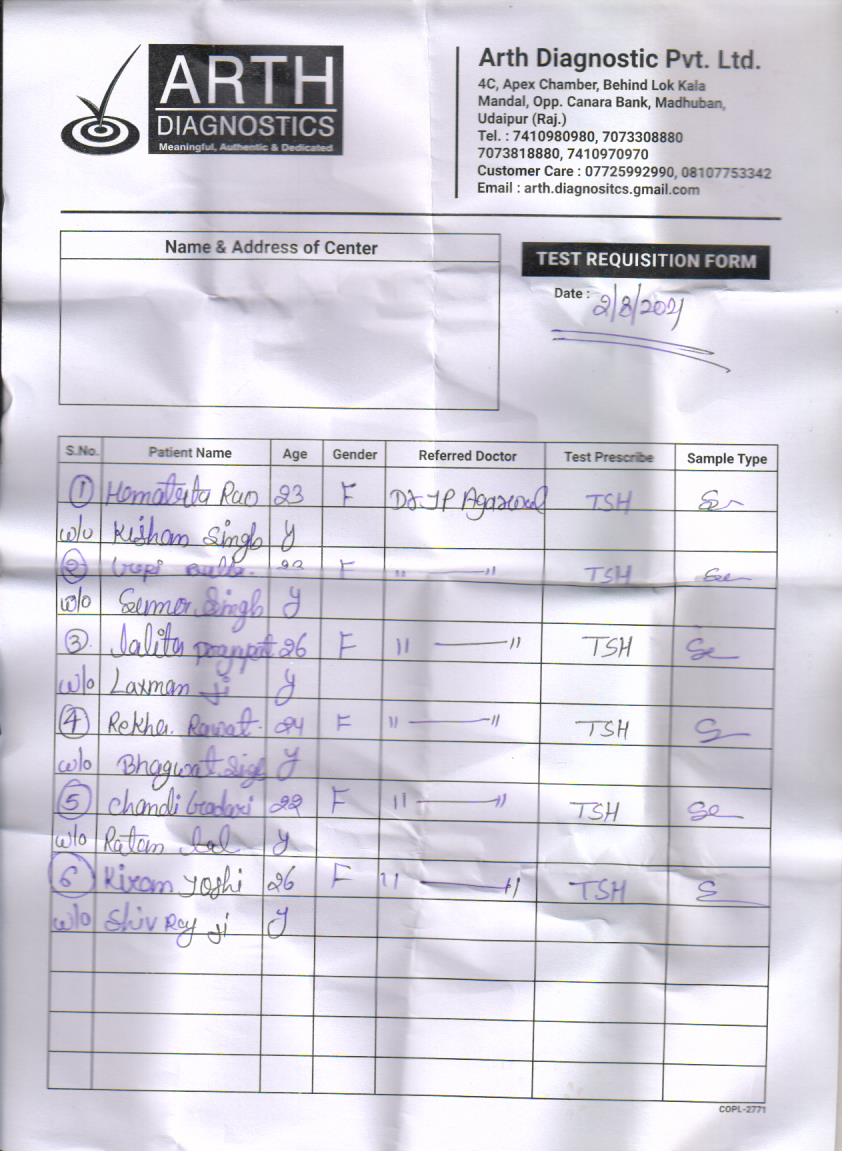 ARTH
DIAGNOSTICS
Meaningful, Authentic & Dedicated
Arth Diagnostic Pvt. Ltd.
4C, Apex Chamber, Behind Lok Kala
Mandal, Opp. Canara Bank, Madhuban,
Udaipur (Raj.)
Tel. : 7410980980, 7073308880
7073818880, 7410970970
Customer Care : 07725992990, 08107753342
Email : arth.diagnositcs.gmail.com
Name & Address of Center
TEST REQUISITION FORM
Date : 2/8/2021
S.No. Patient Name Age Gender Referred Doctor Test Prescribe Sample Type
1 Rao 23 F Dr JP Agarwal TSH Se
w/o Kishan Singh y
2 22 F " — " TSH Se
w/o Singh y
3 Lalita 26 F " — " TSH Se
w/o Laxman ji y
4 Rekha Rawat 24 F " — " TSH Se
w/o Bhagwat Singh y
5 Chandi 22 F " — " TSH Se
w/o Ratan lal y
6 Kiran Yoshi 26 F " — " TSH S
w/o Shiv Raj ji y
COPL-2771